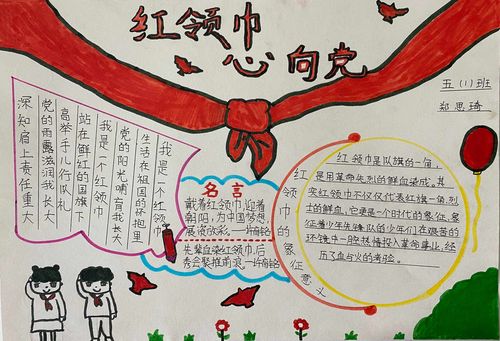 红领巾
心向党
五(1)班
郑思琦
我是一个红领巾
生活在祖国的怀抱里
党的阳光哺育我长大
我是一个红领巾
站在鲜红的国旗下
高举手儿行队礼
党的雨露滋润我长大
深知肩上责任重大
名言
戴着红领巾,迎着
朝阳,为中国梦想,
展彩.一许
先辈血染红领巾,后
秀会聚推前浪.一许
红领巾的象征意义
红领巾是队旗的一角,
是用革命先烈的鲜血染成。其
实红领巾不仅仅代表红旗一角,烈
士的鲜血,它更是一个时代的象征,象
征着少年先锋队的少年们在艰苦的
环境中一腔热情投入革命事业,经
历了血与火的考验。